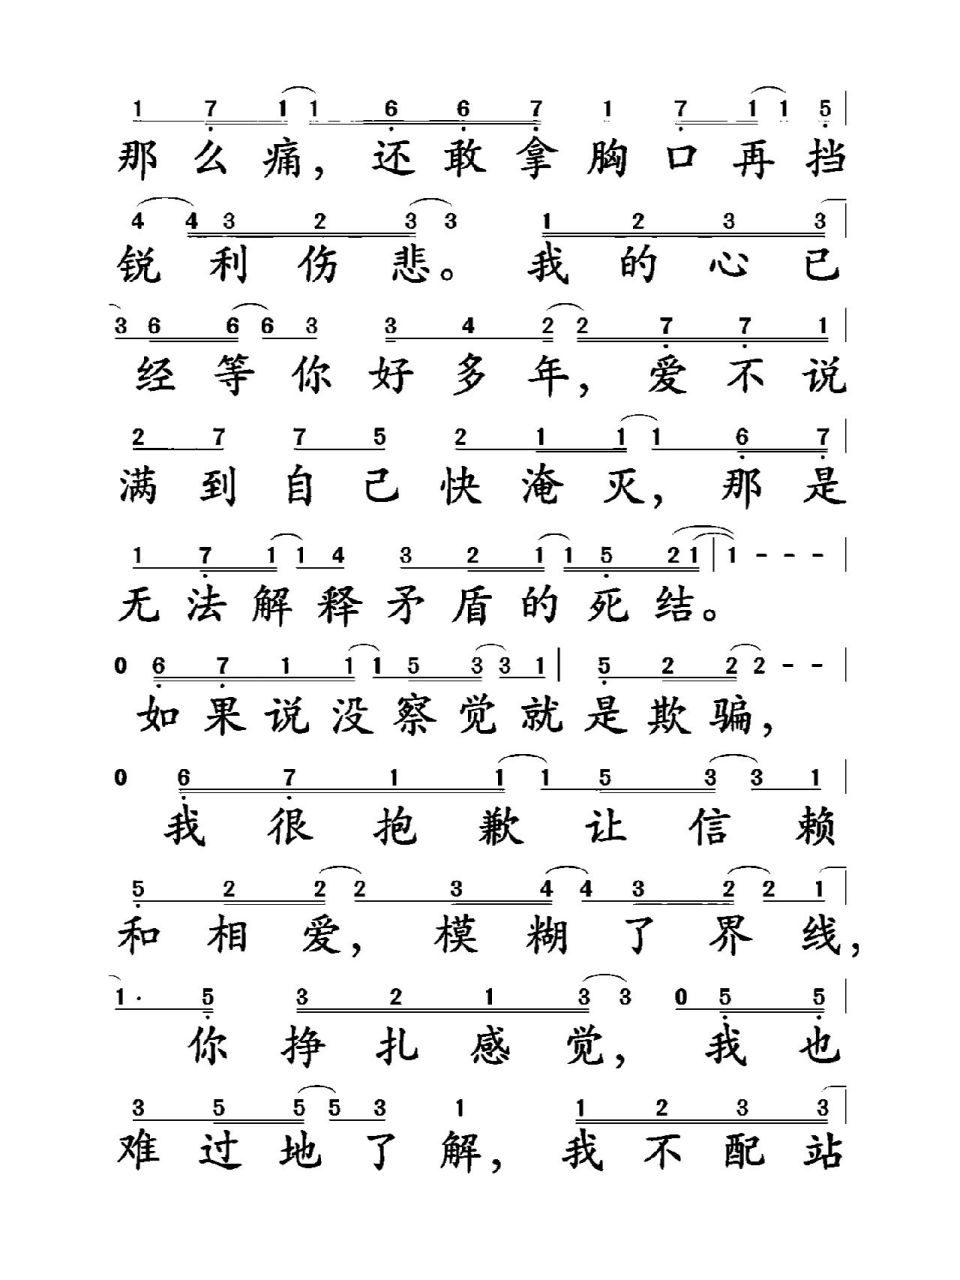 1 7 1 1 6 6 7 1 7 1 1 5
那么痛，还敢拿胸口再挡
4 4 3 2 3 3 1 2 3 3
锐利伤悲。我的心已
3 6 6 6 3 3 4 2 2 7 7 1
经等你好多年，爱不说
2 7 7 5 2 1 1 1 6 7
满到自己快淹灭，那是
1 7 1 1 4 3 2 1 1 5 2 1 1 - - -
无法解释矛盾的死结。
0 6 7 1 1 1 5 3 3 1 5 2 2 2 - -
如果说没察觉就是欺骗，
0 6 7 1 1 1 5 3 3 1
我很抱歉让信赖
5 2 2 2 3 4 4 3 2 2 1
和相爱，模糊了界线，
1· 5 3 2 1 3 3 0 5 5
你挣扎感觉，我也
3 5 5 5 3 1 1 2 3 3
难过地了解，我不配站